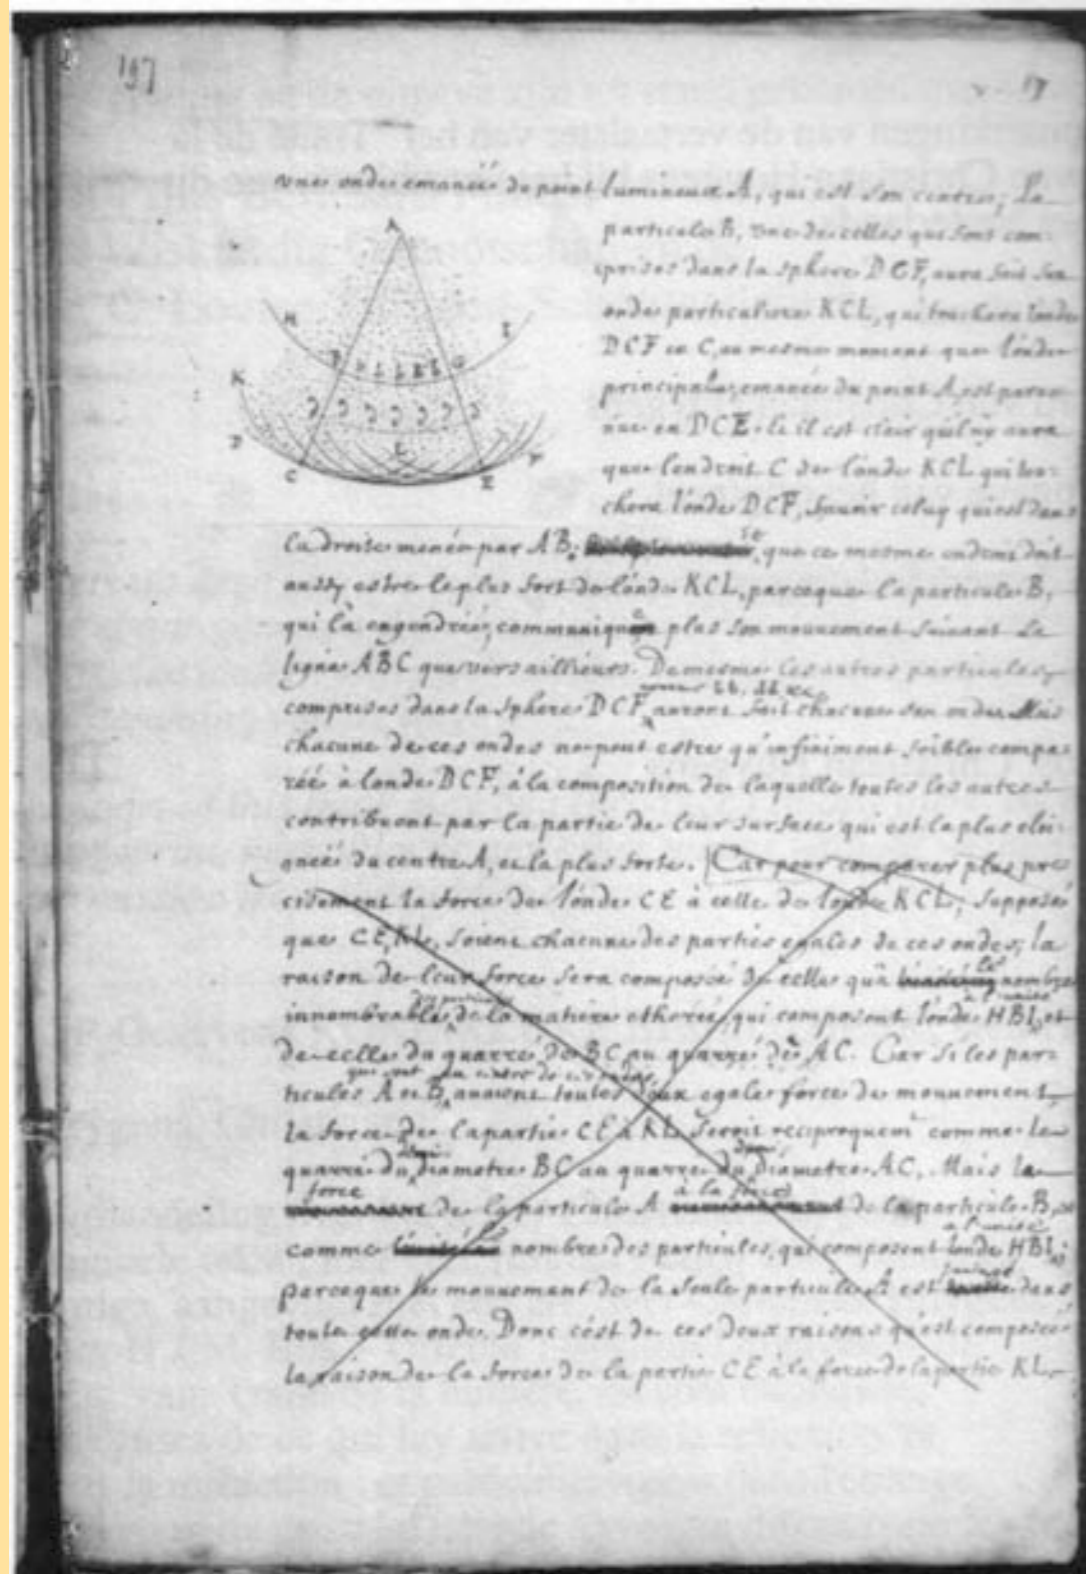 197
17
une onde emanée du point lumineux A, qui est son centre; la
particule B, une de celles qui sont com-
prises dans la sphere DCF, aura fait son
onde particuliere KCL, qui touchera l'onde
DCF en C, au mesme moment que l'onde
principale, emanée du point A, est parve-
nüe en DCF. et il est clair qu'il n'y aura
que l'endroit C de l'onde KCL qui tou-
chera l'onde DCF, sçavoir celuy qui est dans
A
H
I
B b b b b G
K
d d d d d d
D
L
F
C
E
la droite menée par AB; et que ce mesme endroit doit
aussy estre le plus fort de l'onde KCL, parceque la particule B,
qui l'a engendrée, communique plus son mouvement suivant la
ligne ABC que vers ailleurs. De mesme les autres particules
comme bb, dd &c.
comprises dans la sphere DCF, auront fait chacune son onde. Mais
chacune de ces ondes ne peut estre qu'infiniment foible compa-
rée à l'onde DCF, à la composition de laquelle toutes les autres
contribuent par la partie de leur surface qui est la plus eloi-
gnée du centre A, et la plus forte. Car pour comparer plus pre
cisement la force de l'onde CE à celle de l'onde KCL, supposé
que CE, KL, soient chacune des parties egales de ces ondes; la
raison de leur force sera composée de celle qu'a le nombre
innombrable des particules de la matiere etherée, qui composent l'onde HBI, à l'unité et
de celle du quarré de BC au quarré de AC. Car si les par-
ticules A et B, qui sont au centre de ces ondes, avoient toutes deux egale force de mouvement,
la force de la partie CE à KL seroit reciproquemt comme le
quarré du demi diametre BC au quarré du demi diametre AC. Mais la
force de la particule A à la force de la particule B, est
comme le nombre des particules, qui composent l'onde HBI, à l'unité;
parceque le mouvement de la seule particule A est dans
toute cette onde. Donc c'est de ces deux raisons qu'est composée
la raison de la force de la partie CE à la force de la partie KL.